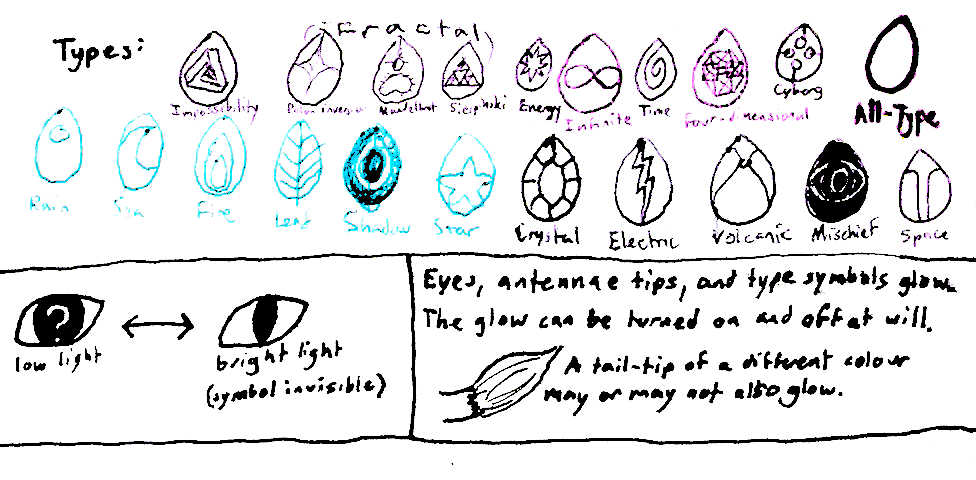 Types:
Fractal
Impossibility
inversion
Mandelbrot
Sierpinski
Energy
Infinite
Time
Four-dimensional
Cyborg
All-Type
Rain
Sea
Fire
Leaf
Shadow
Star
Crystal
Electric
Volcanic
Mischief
Space
?
low light
bright light
(symbol invisible)
Eyes, antennae tips, and type symbols glow.
The glow can be turned on and off at will.
A tail-tip of a different colour
may or may not also glow.